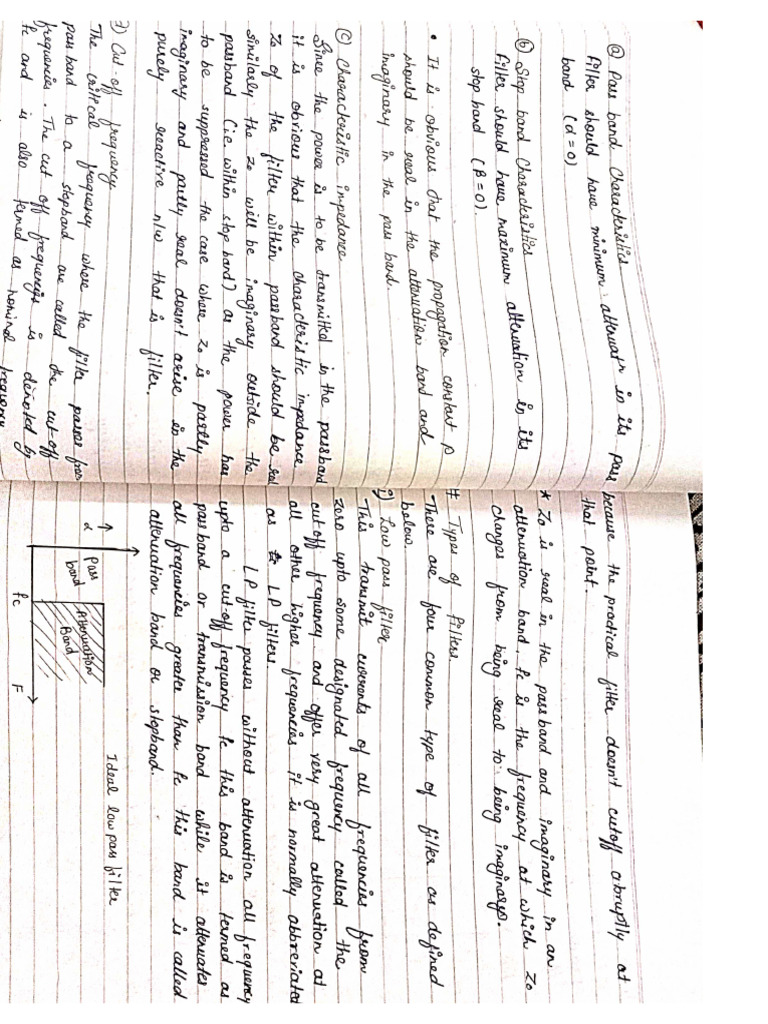 (a) Pass band Characteristics
Filter should have minimum attenuatn in its pass
band (α = 0)
(b) Stop band Characteristics
Filter should have maximum attenuation in its
stop band (β = 0).
• It is obvious that the propagation constant p
should be real in the attenuation band and
imaginary in the pass band.
(c) Characteristic impedance
Since the power is to be transmitted in the passband
it is obvious that the characteristic impedance
Zo of the filter within passband should be real
similarly the Zo will be imaginary outside the
passband (i.e within stop band) as the power has
to be suppressed the case where Zo is partly
imaginary and partly real doesn't arise in the
purely reactive n/w that is filter.
3) Cut-off frequency
The critical frequency where the filter passes from
pass band to a stopband are called the cut-off
frequencies. The cut off frequencies is denoted by
fc and is also termed as nominal frequency
because the practical filter doesn't cutoff abruptly at
that point.
* Zo is real in the passband and imaginary in an
attenuation band. fc is the frequency at which Zo
changes from being real to being imaginary.
# Types of filters
There are four common type of filter as defined
below.
i) Low pass filter
This transmit currents of all frequencies from
zero upto some designated frequency called the
cut off frequency and offer very great attenuation at
all other higher frequencies it is normally abbreviated
as LP filters.
LP filter passes without attenuation all frequency
upto a cut-off frequency fc this band is termed as
passband or transmission band while it attenuates
all frequencies greater than fc this band is called
attenuation band or stopband.
Ideal low pass filter
α
Pass
band
Attenuation
Band
fc
F